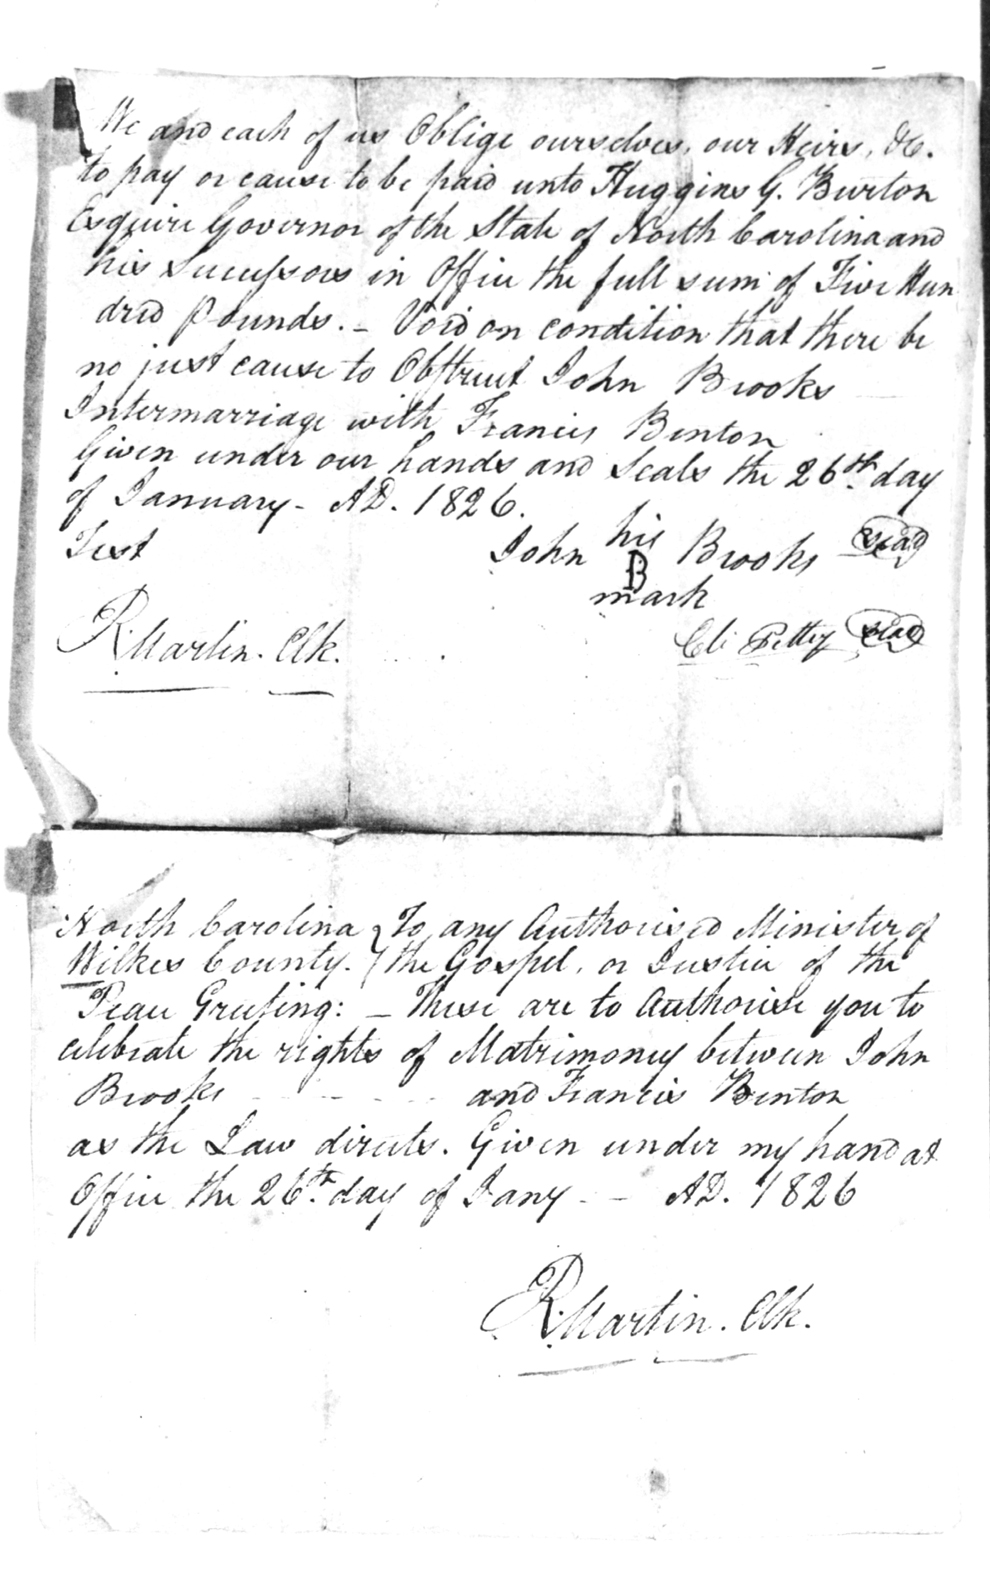 We and each of us Oblige ourselves, our Heirs, &c.
to pay or cause to be paid unto Huggins G. Burton
Esquire Governor of the State of North Carolina and
his Successors in Office the full sum of Five Hun
dred Pounds. – Void on condition that there be
no just cause to Obstruct John Brooks
Intermarriage with Francis Benton
Given under our hands and Seals the 26th day
of January - AD. 1826.
Test
John his Brooks seal
B
mark
R. Martin. Clk.
Eli Petty seal
North Carolina } To any Authorised Minister of
Wilkes County. } the Gospel, or Justice of the
Peace Greeting: – These are to Authorise you to
celebrate the rights of Matrimony between John
Brooks - - - - and Francis Benton
as the Law directs. Given under my hand at
Office the 26th day of Jany - – AD. 1826
R. Martin. Clk.